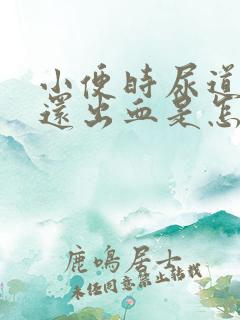 小便時尿道
還出血是怎
鹿鳴居士
未经同意禁止转载